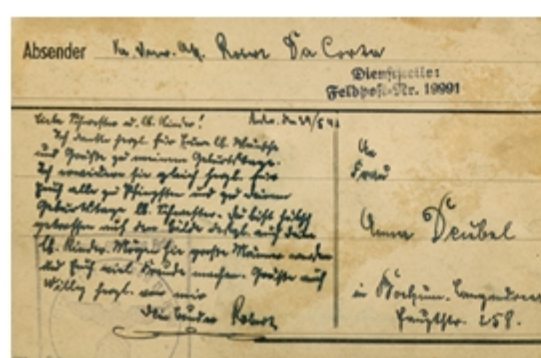 Absender Kr. Verw. Robert Da Corta
Dienststelle:
Feldpost-Nr. 19991
Liebe Schwester u. lb. Kinder!
Ich danke herzl. für Eure lb. Wünsche
und Grüße zu meinem Geburtstage.
Ich erwidere sie gleich herzl. für
Euch alle zu Pfingsten und zu Deinem
Geburtstage lb. Schwester. Du bist hübsch
getroffen auf dem Bilde desgl. auch Deine
lb. Kinder. Mögen sie große Männer werden
und Euch viel Freude machen. Grüße auch
Willy herzl. von mir
Dein Bruder Robert
An
Frau
Anna Deubel
in Bochum-Langendreer
Hauptstr. 258.